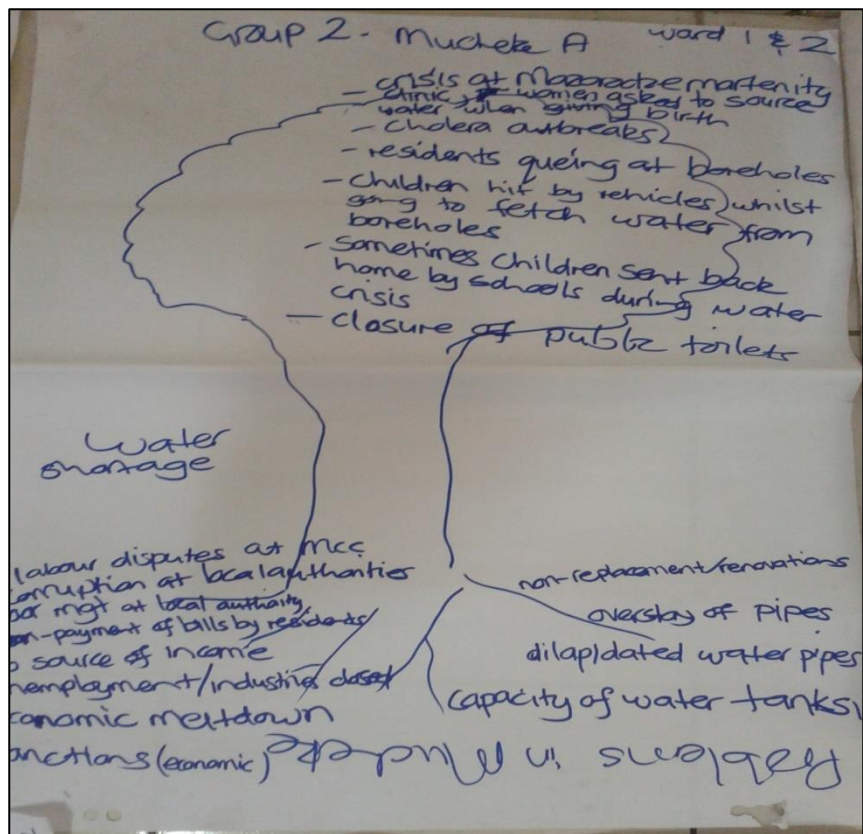 Group 2 - Mucheke A ward 1 & 2
- crisis at Mazorodze martenity
clinic, women asked to source
water when giving birth
- cholera outbreaks
- residents queing at boreholes
- children hit by vehicles whilst
going to fetch water from
boreholes
- sometimes children sent back
home by schools during water
crisis
- closure of public toilets
water
shortage
labour disputes at MCC
orruption at local authorities
oor mgt at local authority
on-payment of bills by residents
source of income
nemployment/industries closed
conomic meltdown
anctions (economic)
non-replacement/renovations
overstay of pipes
dilapidated water pipes
capacity of water tanks
Problems in Mucheke